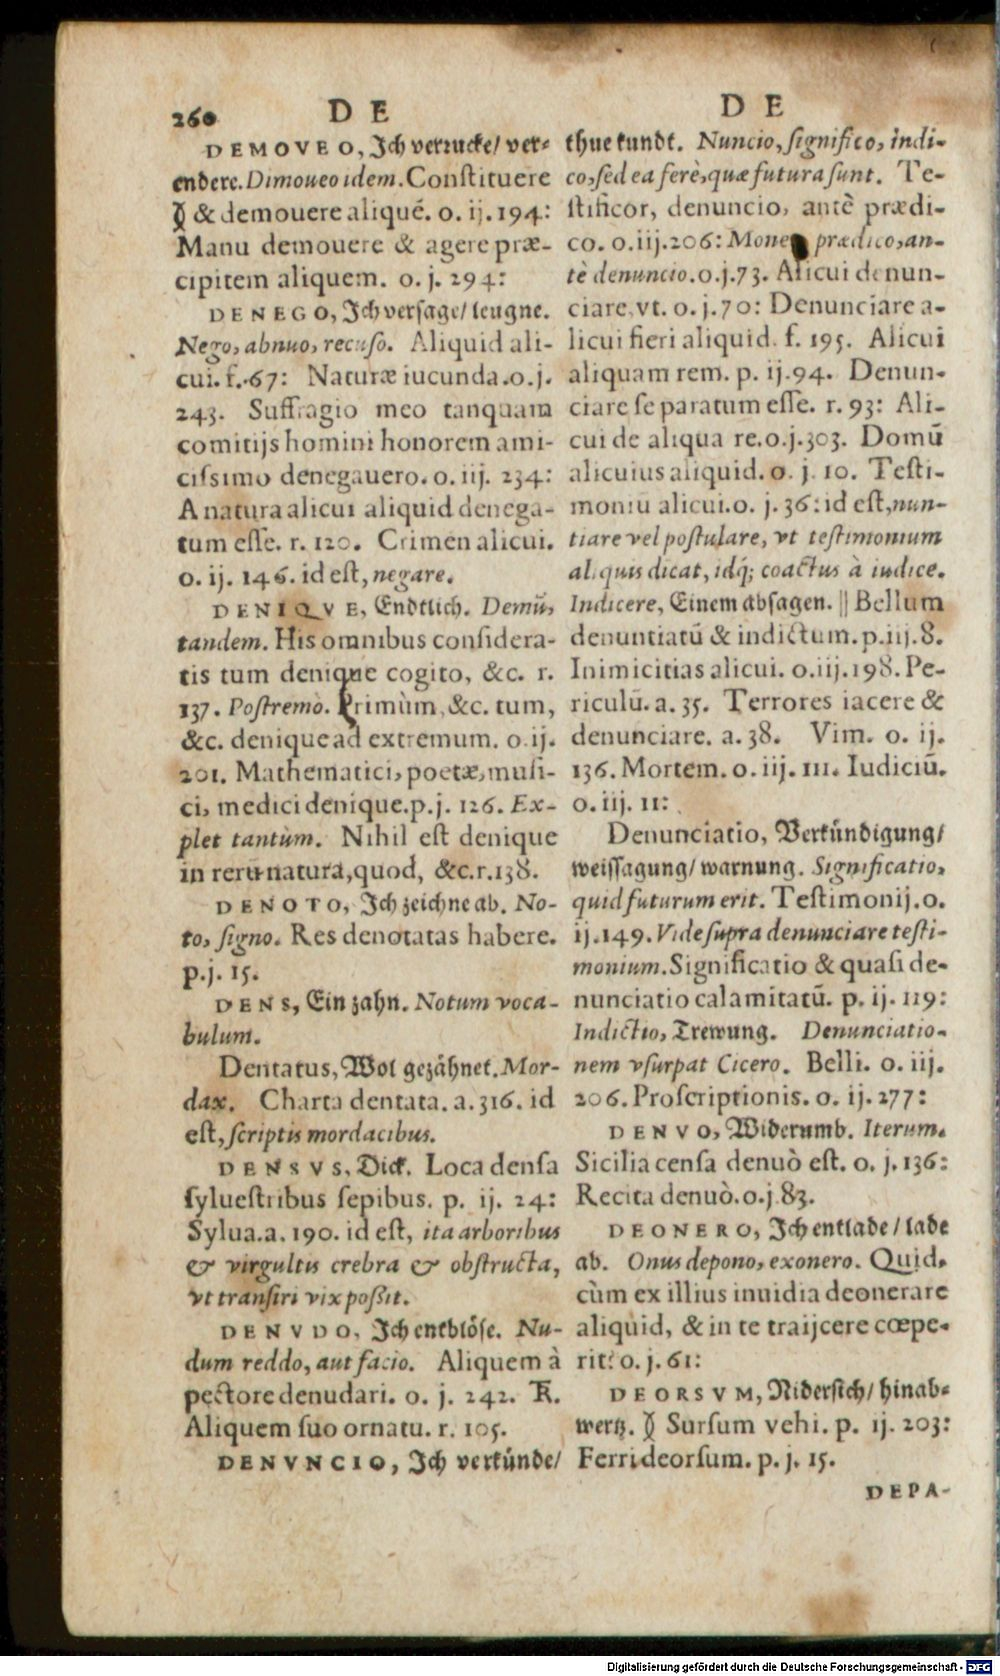 260 DE DE
DEMOVEO, Jch verrucke/ ver-
endere. Dimoueo idem. Constituere
& demouere aliquē. o. ij. 194:
Manu demouere & agere præ-
cipitem aliquem. o. j. 294:
DENEGO, Jch versage/ leugne.
Nego, abnuo, recuso. Aliquid ali-
cui. f. 67: Naturæ iucunda. o. j.
243. Suffragio meo tanquam
comitijs homini honorem ami-
cissimo denegauero. o. iij. 234:
A natura alicui aliquid denega-
tum esse. r. 120. Crimen alicui.
o. ij. 146. id est, negare.
DENIQVE, Endtlich. Demū,
tandem. His omnibus considera-
tis tum denique cogito, &c. r.
137. Postremò. Primùm, &c. tum,
&c. denique ad extremum. o. ij.
201. Mathematici, poetæ, musi-
ci, medici denique. p. j. 126. Ex-
plet tantùm. Nihil est denique
in rerū natura, quod, &c. r. 138.
DENOTO, Jch zeichne ab. No-
to, signo. Res denotatas habere.
p. j. 15.
DENS, Ein zahn. Notum voca-
bulum.
Dentatus, Wol gezähnet. Mor-
dax. Charta dentata. a. 316. id
est, scriptis mordacibus.
DENSVS, Dick. Loca densa
syluestribus sepibus. p. ij. 24:
Sylua. a. 190. id est, ita arboribus
& virgultis crebra & obstructa,
vt transiri vix poßit.
DENVDO, Jch entblöse. Nu-
dum reddo, aut facio. Aliquem à
pectore denudari. o. j. 242. R.
Aliquem suo ornatu. r. 105.
DENVNCIO, Jch verkünde/
thue kundt. Nuncio, significo, indi-
co, sed ea ferè, quæ futura sunt. Te-
stificor, denuncio, antè prædi-
co. o. iij. 206: Moneo, prædico, an-
tè denuncio. o. j. 73. Alicui denun-
ciare, vt. o. j. 70: Denunciare a-
licui fieri aliquid. f. 195. Alicui
aliquam rem. p. ij. 94. Denun-
ciare se paratum esse. r. 93: Ali-
cui de aliqua re. o. j. 303. Domū
alicuius aliquid. o. j. 10. Testi-
moniū alicui. o. j. 36: id est, nun-
tiare vel postulare, vt testimonium
aliquis dicat, idq́; coactus à iudice.
Indicere, Einem absagen. || Bellum
denuntiatū & indictum. p. iij. 8.
Inimicitias alicui. o. iij. 198. Pe-
riculū. a. 35. Terrores iacere &
denunciare. a. 38. Vim. o. ij.
136. Mortem. o. iij. 111. Iudiciū.
o. iij. 11:
Denunciatio, Verkündigung/
weissagung/ warnung. Significatio,
quid futurum erit. Testimonij. o.
ij. 149. Vide supra denunciare testi-
monium. Significatio & quasi de-
nunciatio calamitatū. p. ij. 119:
Indictio, Trewung. Denunciatio-
nem vsurpat Cicero. Belli. o. iij.
206. Proscriptionis. o. ij. 277:
DENVO, Widerumb. Iterum.
Sicilia censa denuò est. o. j. 136:
Recita denuò. o. j. 83.
DEONERO, Jch entlade/ lade
ab. Onus depono, exonero. Quid,
cùm ex illius inuidia deonerare
aliquid, & in te traijcere cœpe-
rit? o. j. 61:
DEORSVM, Nidersich/ hinab-
wertz. Sursum vehi. p. ij. 203:
Ferri deorsum. p. j. 15.
DEPA-
Digitalisierung gefördert durch die Deutsche Forschungsgemeinschaft - DFG